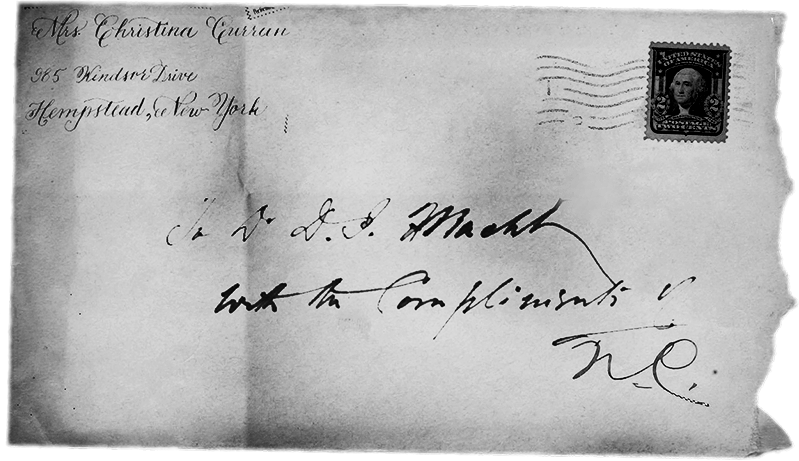 Mrs. Christina Curran
985 Windsor Drive
Hempstead, New York
UNITED STATES
OF AMERICA
2 2
POSTAGE
TWO CENTS
To Dr D. I. Macht
With the Compliments of
N. C.